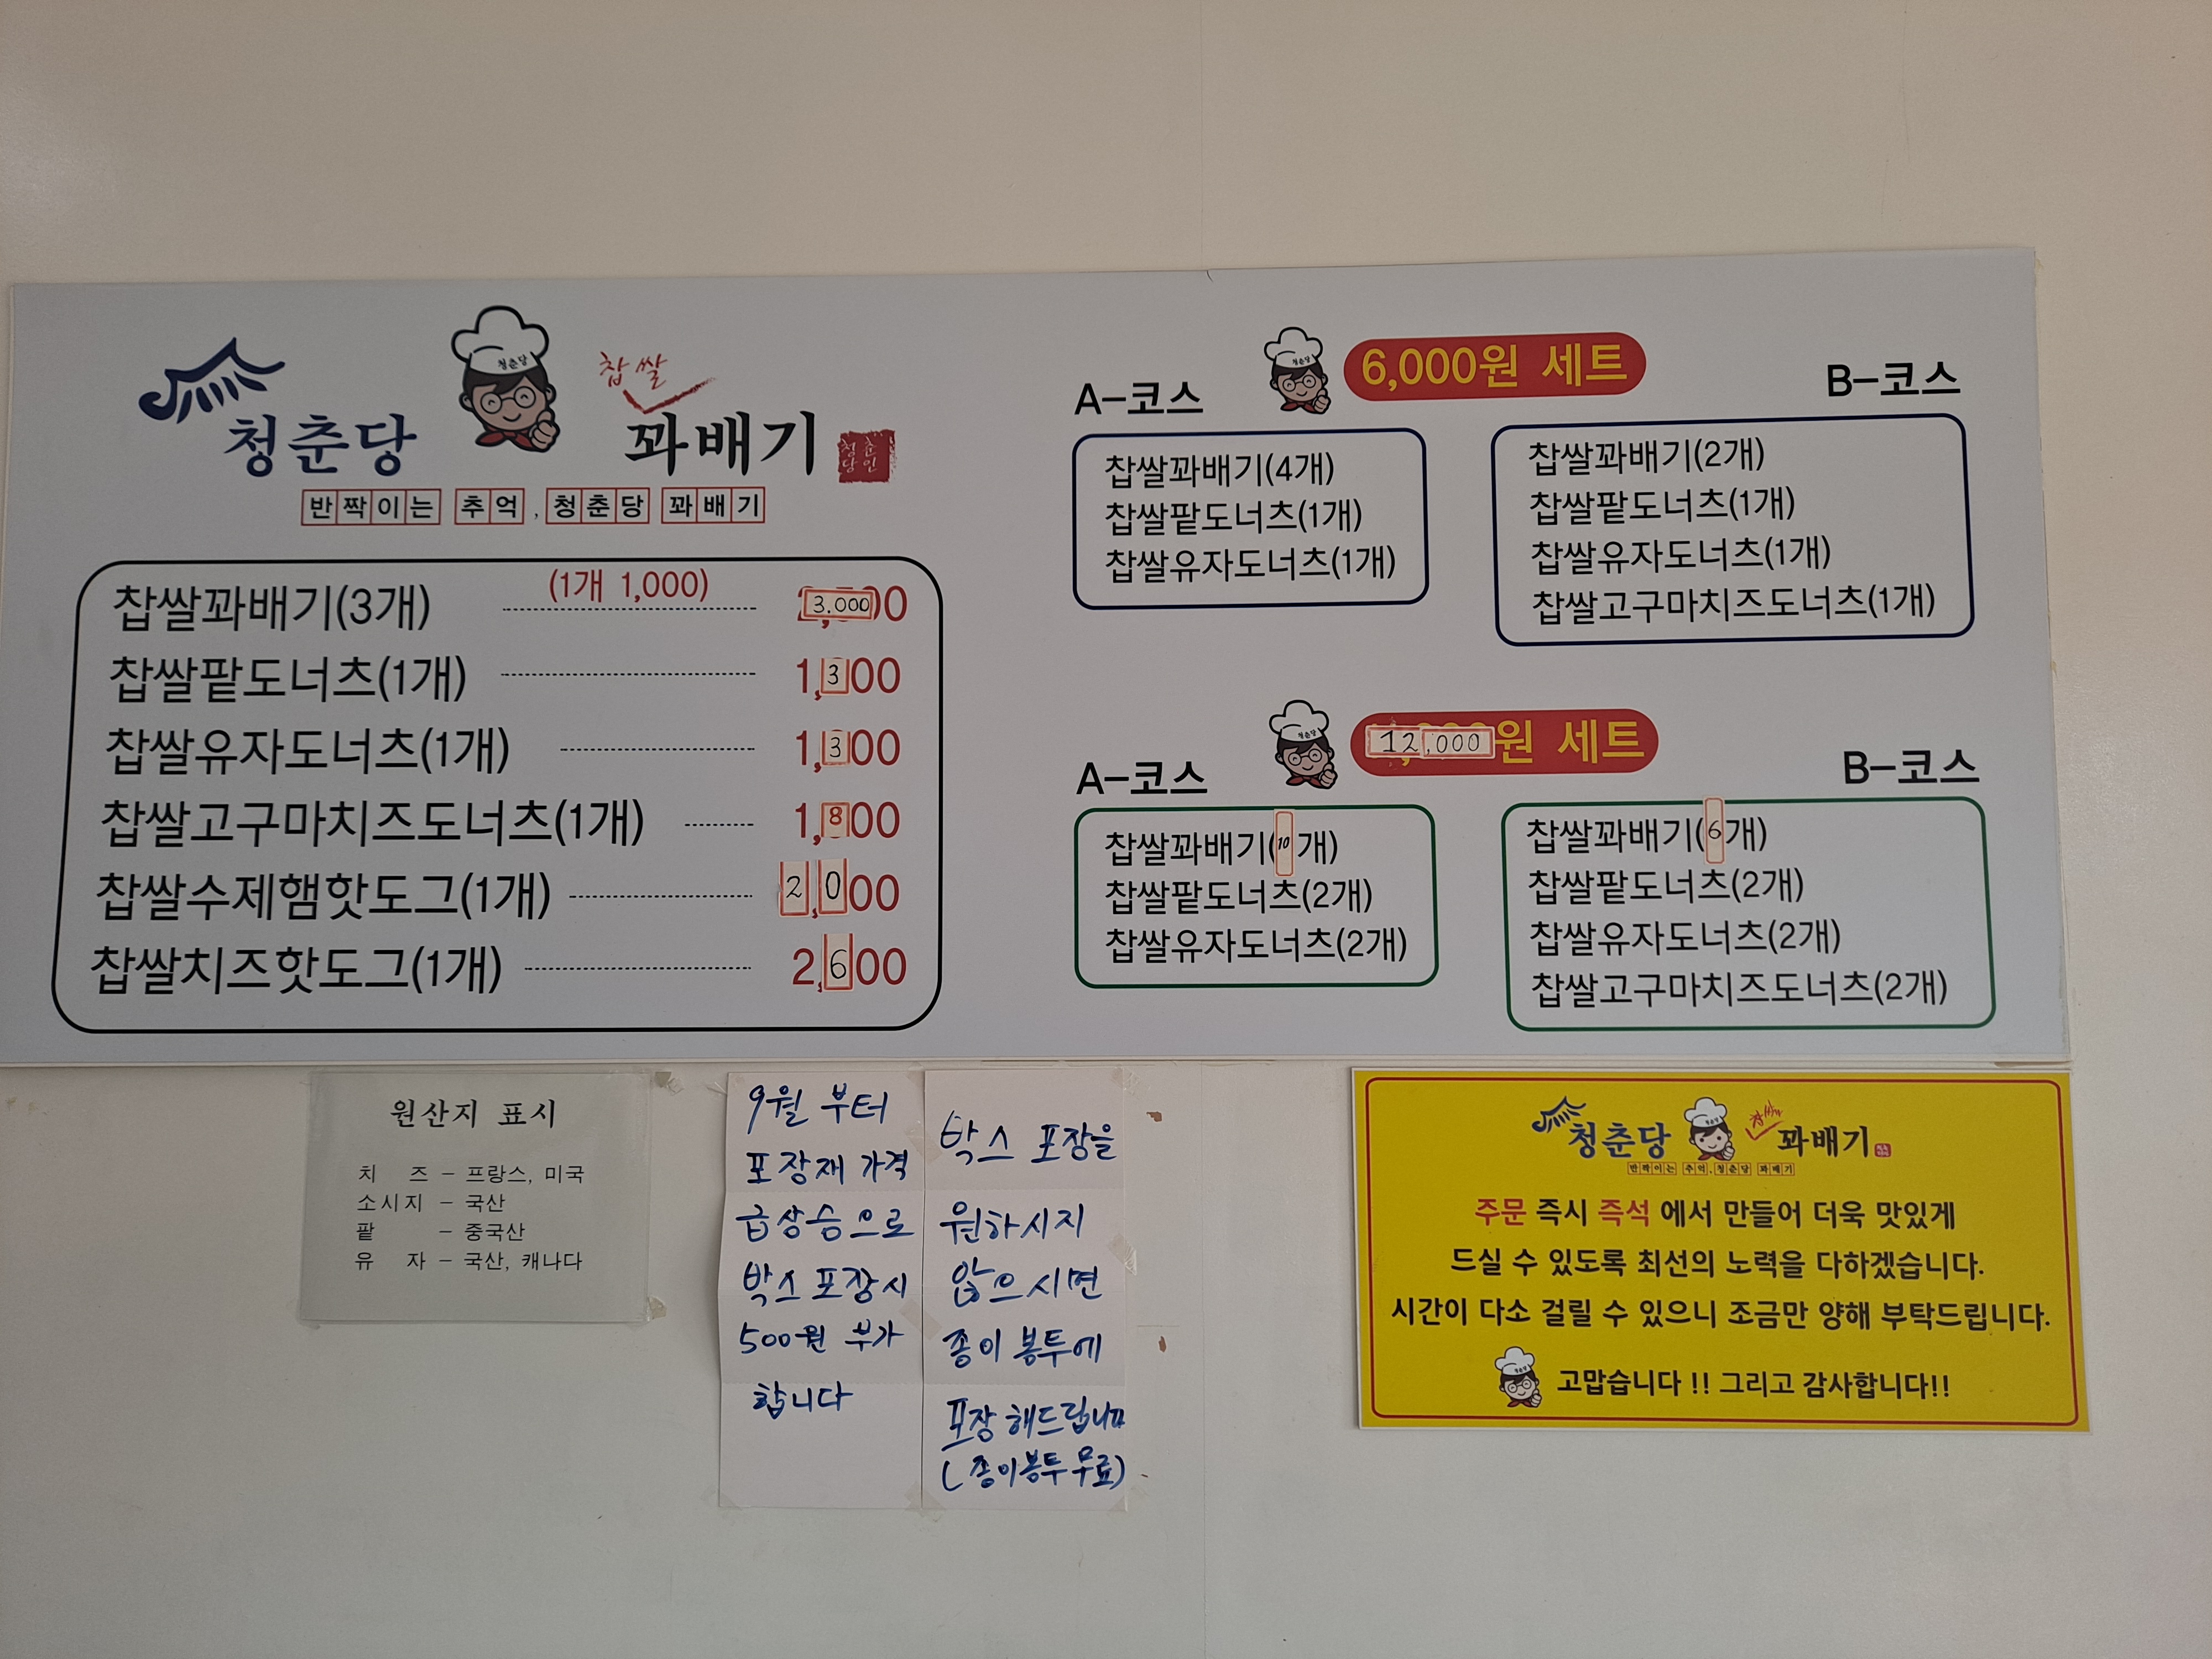 청춘당
찹쌀
꽈배기
청춘당인
반짝이는 추억, 청춘당 꽈배기
찹쌀꽈배기(3개) (1개 1,000) 3.000
찹쌀팥도너츠(1개) 1,300
찹쌀유자도너츠(1개) 1,300
찹쌀고구마치즈도너츠(1개) 1,800
찹쌀수제햄핫도그(1개) 2,000
찹쌀치즈핫도그(1개) 2,600
6,000원 세트
A-코스
찹쌀꽈배기(4개)
찹쌀팥도너츠(1개)
찹쌀유자도너츠(1개)
B-코스
찹쌀꽈배기(2개)
찹쌀팥도너츠(1개)
찹쌀유자도너츠(1개)
찹쌀고구마치즈도너츠(1개)
12,000원 세트
A-코스
찹쌀꽈배기(10개)
찹쌀팥도너츠(2개)
찹쌀유자도너츠(2개)
B-코스
찹쌀꽈배기(6개)
찹쌀팥도너츠(2개)
찹쌀유자도너츠(2개)
찹쌀고구마치즈도너츠(2개)
원산지 표시
치 즈 - 프랑스, 미국
소시지 - 국산
팥 - 중국산
유 자 - 국산, 캐나다
9월 부터
포장재 가격
급상승으로
박스 포장시
500원 부가
합니다
박스 포장을
원하시지
않으시면
종이 봉투에
포장 해드립니다
(종이봉투 무료)
청춘당 찹쌀 꽈배기
반짝이는 추억, 청춘당 꽈배기
주문 즉시 즉석 에서 만들어 더욱 맛있게
드실 수 있도록 최선의 노력을 다하겠습니다.
시간이 다소 걸릴 수 있으니 조금만 양해 부탁드립니다.
고맙습니다 !! 그리고 감사합니다!!